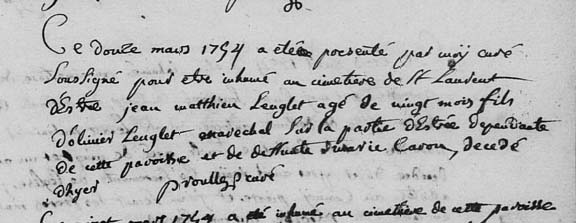 Ce douze mars 1754 a étée presenté par moy curé
soussigné pour etre inhumé au cimetiere de St Laurent
d'Estrée jean matthieu Lenglet agé de vingt mois fils
d'olivier Lenglet marechel sur la partie d'Estrée dependante
de cette paroisse et de deffunte marie Caron, decedé
d'hyer curé
mars 1754 a été inhumé au cimetiere de cette paroisse